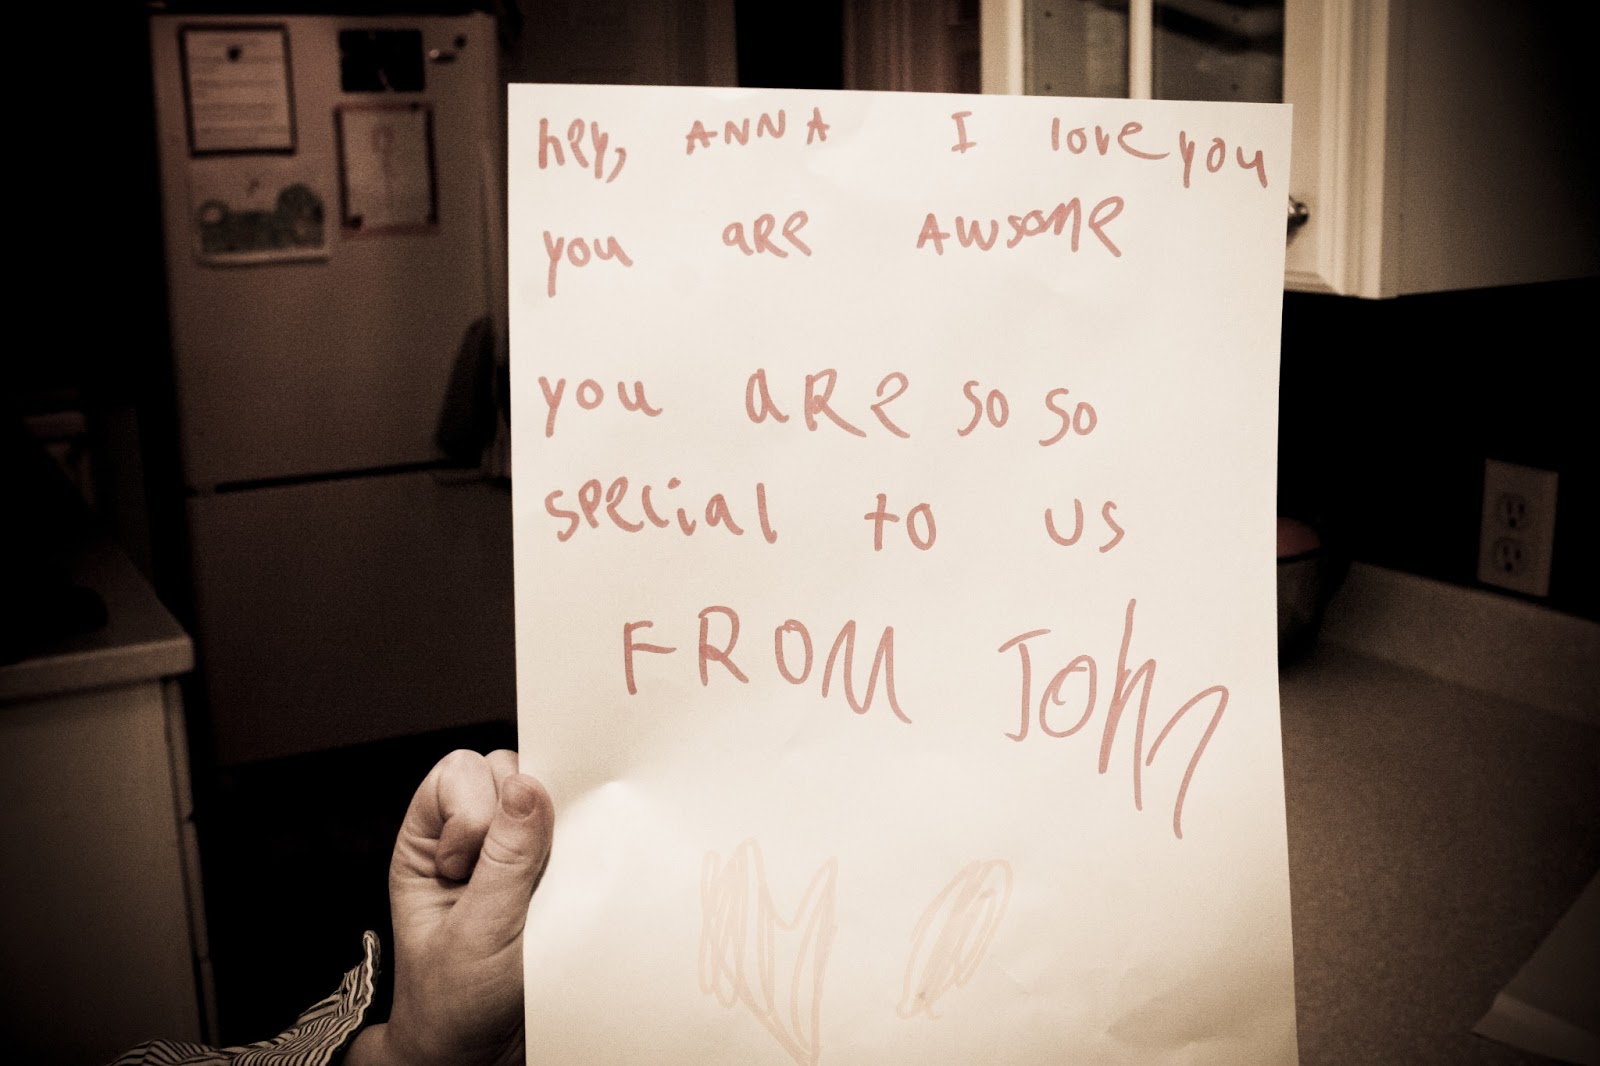 hey, ANNA I love you
you are AWSome
you are so so
special to us
FROM JOhn